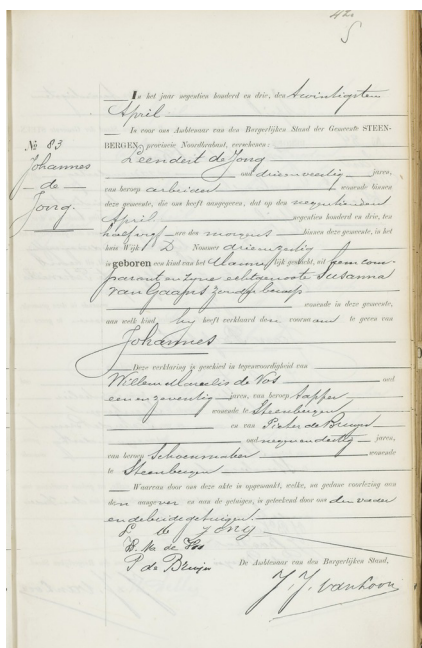 In het jaar negentien honderd en drie, den twintigsten
April
Is voor ons Ambtenaar van den Burgerlijken Stand der Gemeente STEEN-
BERGEN, provincie Noordbrabant, verschenen:
Leendert de Jong
oud drieenveertig jaren,
van beroep arbeider wonende binnen
deze gemeente, die ons heeft aangegeven, dat op den negentienden
April negentien honderd en drie, ten
half vijf ure des morgens binnen deze gemeente, in het
huis Wijk D Nummer drieenzestig
is geboren een kind van het Mannelijk geslacht, uit hem com-
parant en zijne echtgenoote Susanna
van Gaans zonder beroep
wonende in deze gemeente,
aan welk kind hij heeft verklaard den voornaam te geven van
Johannes
Deze verklaring is geschied in tegenwoordigheid van
Willem Marcelis de Vos oud
een en zeventig jaren, van beroep tapper
wonende te Steenbergen
en van Pieter de Bruijn
oud negenendertig jaren,
van beroep Schoenmaker wonende
te Steenbergen
Waarvan door ons deze akte is opgemaakt, welke, na gedane voorlezing aan
den aangever en aan de getuigen, is geteekend door ons den vader
en de beide getuigen.
L de Jong
de Vos
P de Bruijn
De Ambtenaar van den Burgerlijken Stand,
J. J. van Loon
No 83
Johannes
de
Jong.